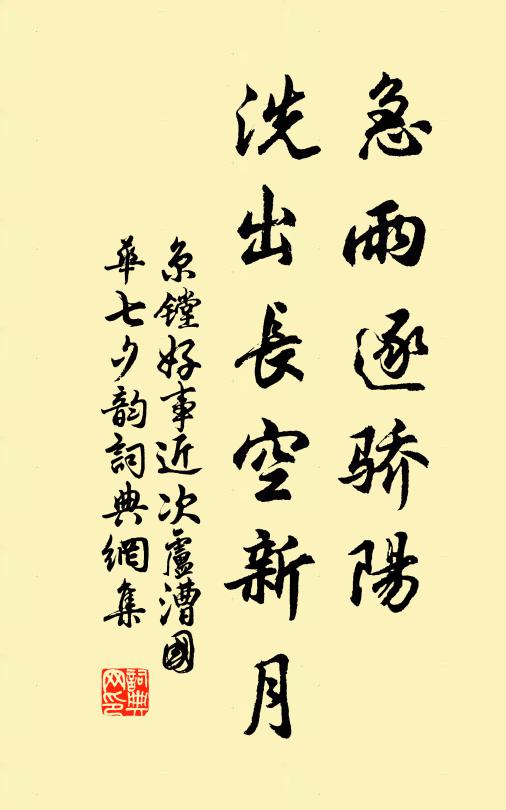 急雨逐骄陽
洗出長空新月
京鏜好事近次盧漕國
華七夕韵詞典網集
詞典网印